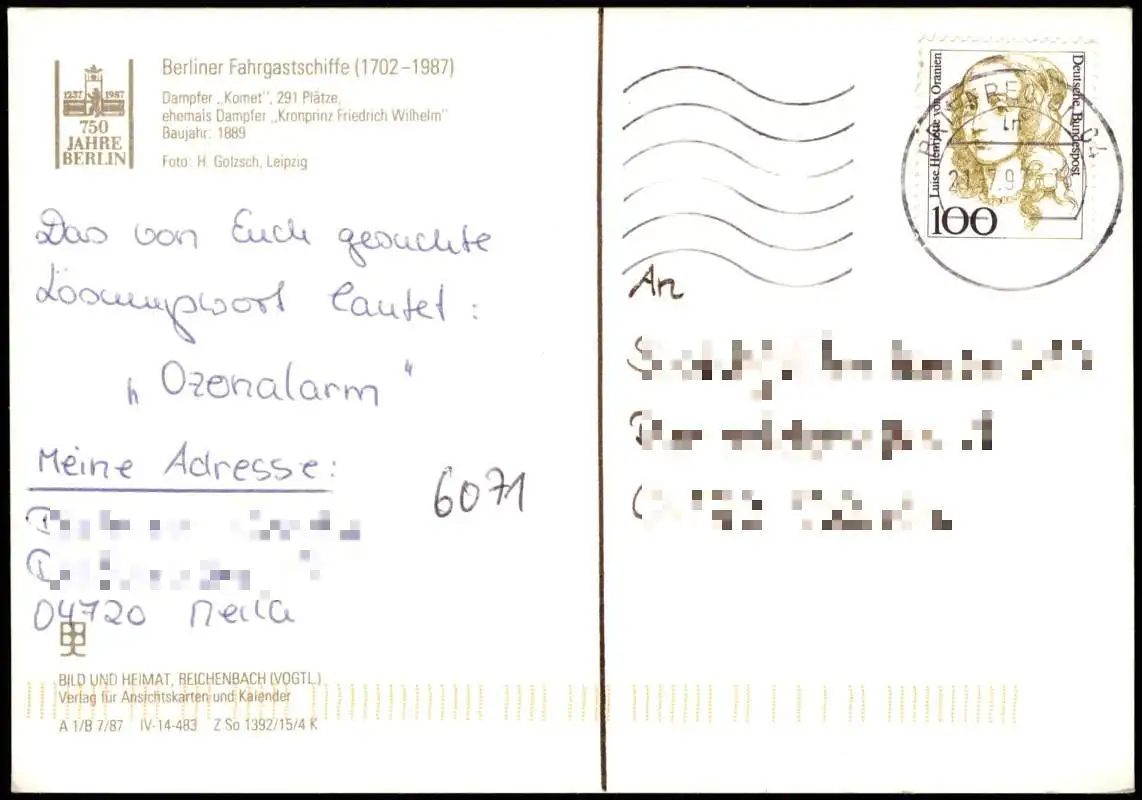 1237 1987
750
JAHRE
BERLIN
Berliner Fahrgastschiffe (1702–1987)
Dampfer „Komet", 291 Plätze,
ehemals Dampfer „Kronprinz Friedrich Wilhelm"
Baujahr: 1889
Foto: H. Golzsch, Leipzig
Das von Euch gesuchte
Lösungswort lautet:
„Ozonalarm"
Meine Adresse:
6071
04720
BILD UND HEIMAT, REICHENBACH (VOGTL.)
Verlag für Ansichtskarten und Kalender
A 1/B 7/87 IV-14-483 Z So 1392/15/4 K
Luise Henriette von Oranien
Deutsche Bundespost
100
An